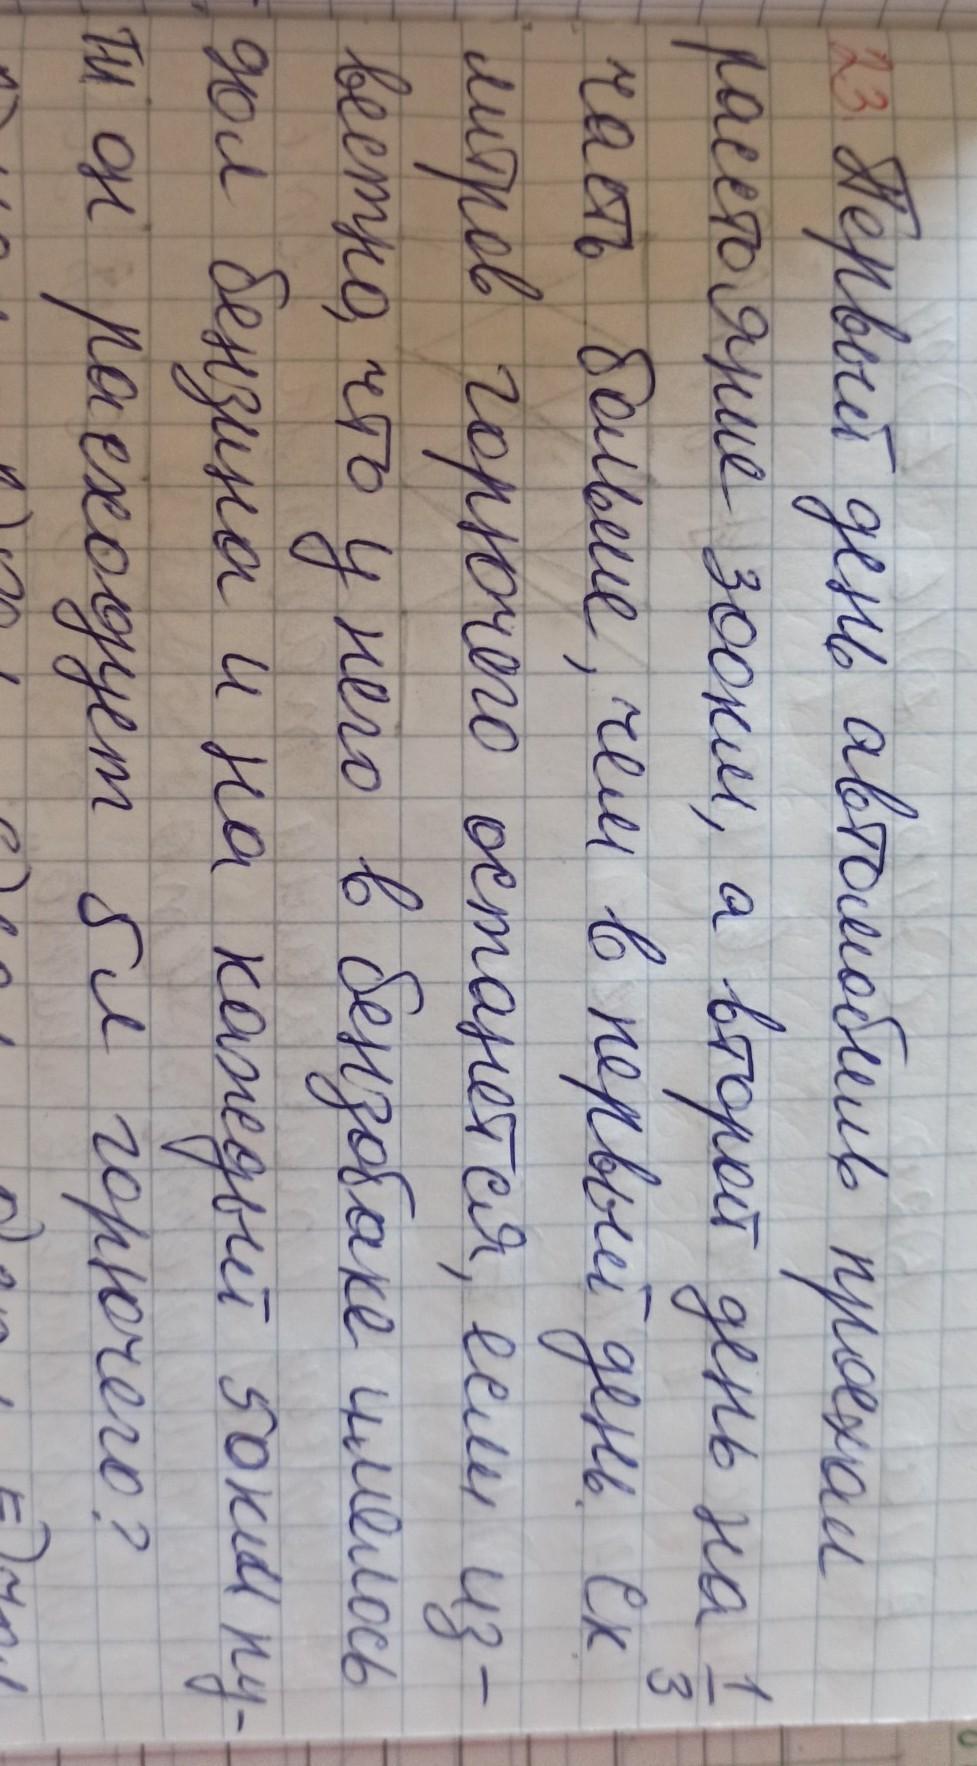 23. Первый день автомобиль проехал
расстояние 300км, а второй день на 1/3
часть больше, чем в первый день. Ск
литров горючего останется, если из-
вестно, что у него в бензобаке имелось
70л бензина и на каждый 50км пу-
ти он расходует 5л горючего?